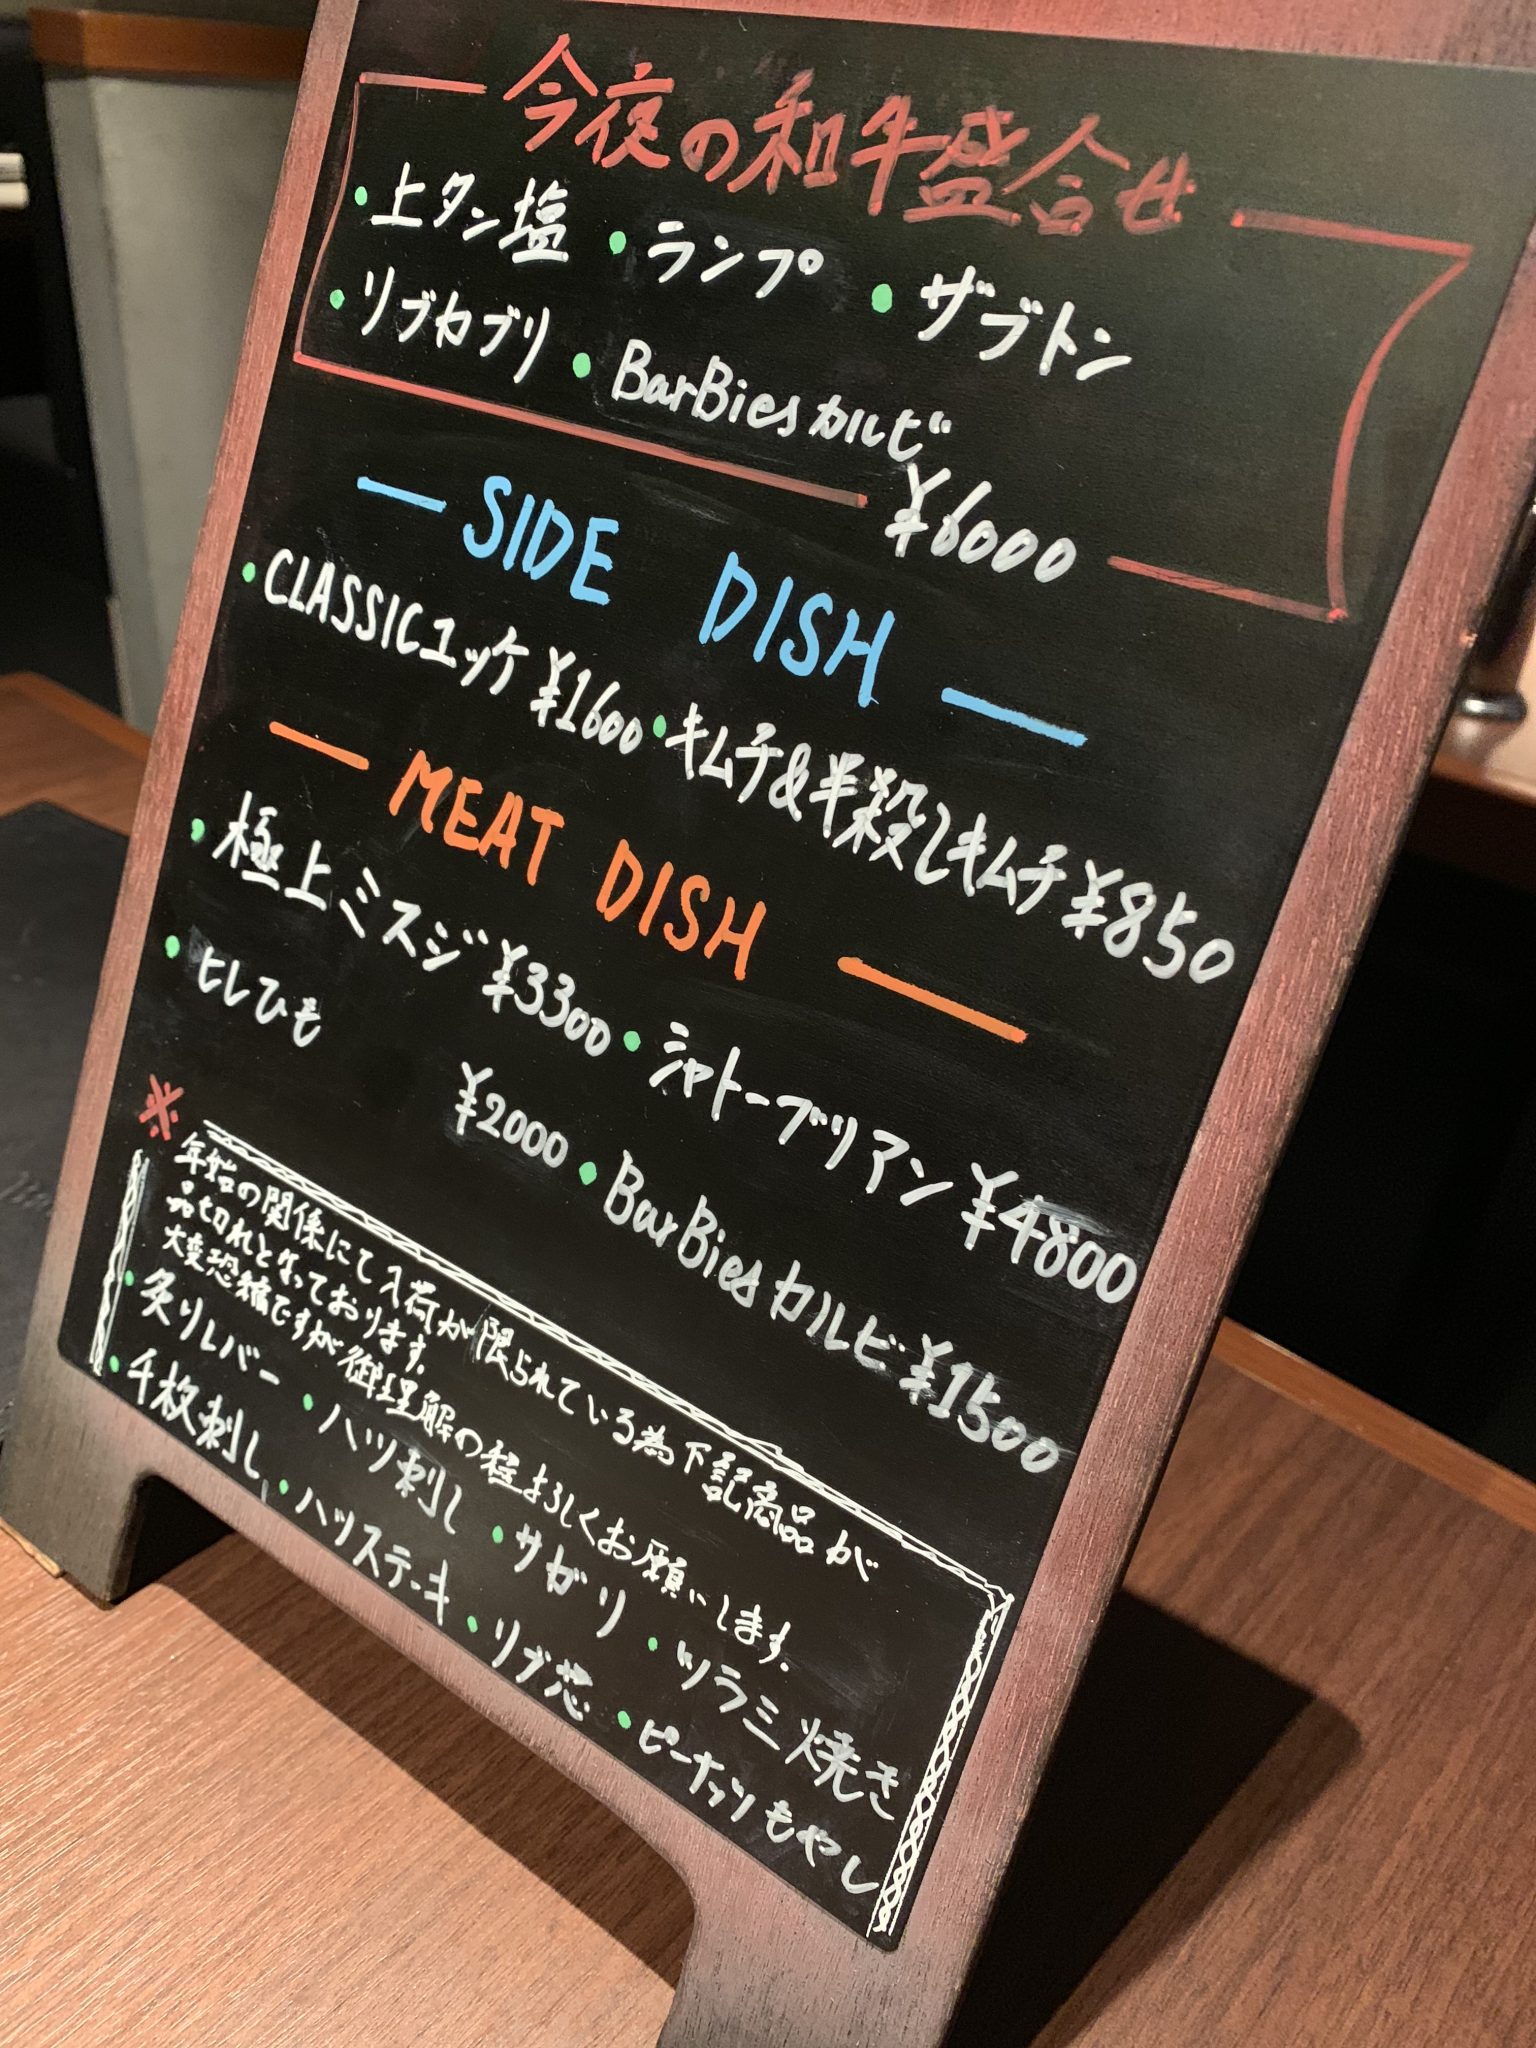 今夜の和牛盛合せ
・上タン塩 ・ランプ ・ザブトン
・リブカブリ ・BarBiesカルビ
¥6000
SIDE DISH
・CLASSICユッケ ¥1600 ・キムチ&半殺しキムチ ¥850
MEAT DISH
・極上ミスジ ¥3300 ・シャトーブリアン ¥4800
・ヒレひも ¥2000 ・BarBiesカルビ ¥1500
※ 年始の関係にて入荷が限られている為下記商品が
品切れとなっております。
大変恐縮ですが御理解の程よろしくお願いします。
・炙りレバー ・ハツ刺し ・サガリ ・ツラミ焼き
・千枚刺し ・ハツステーキ ・リブ芯 ・ピーナッツもやし